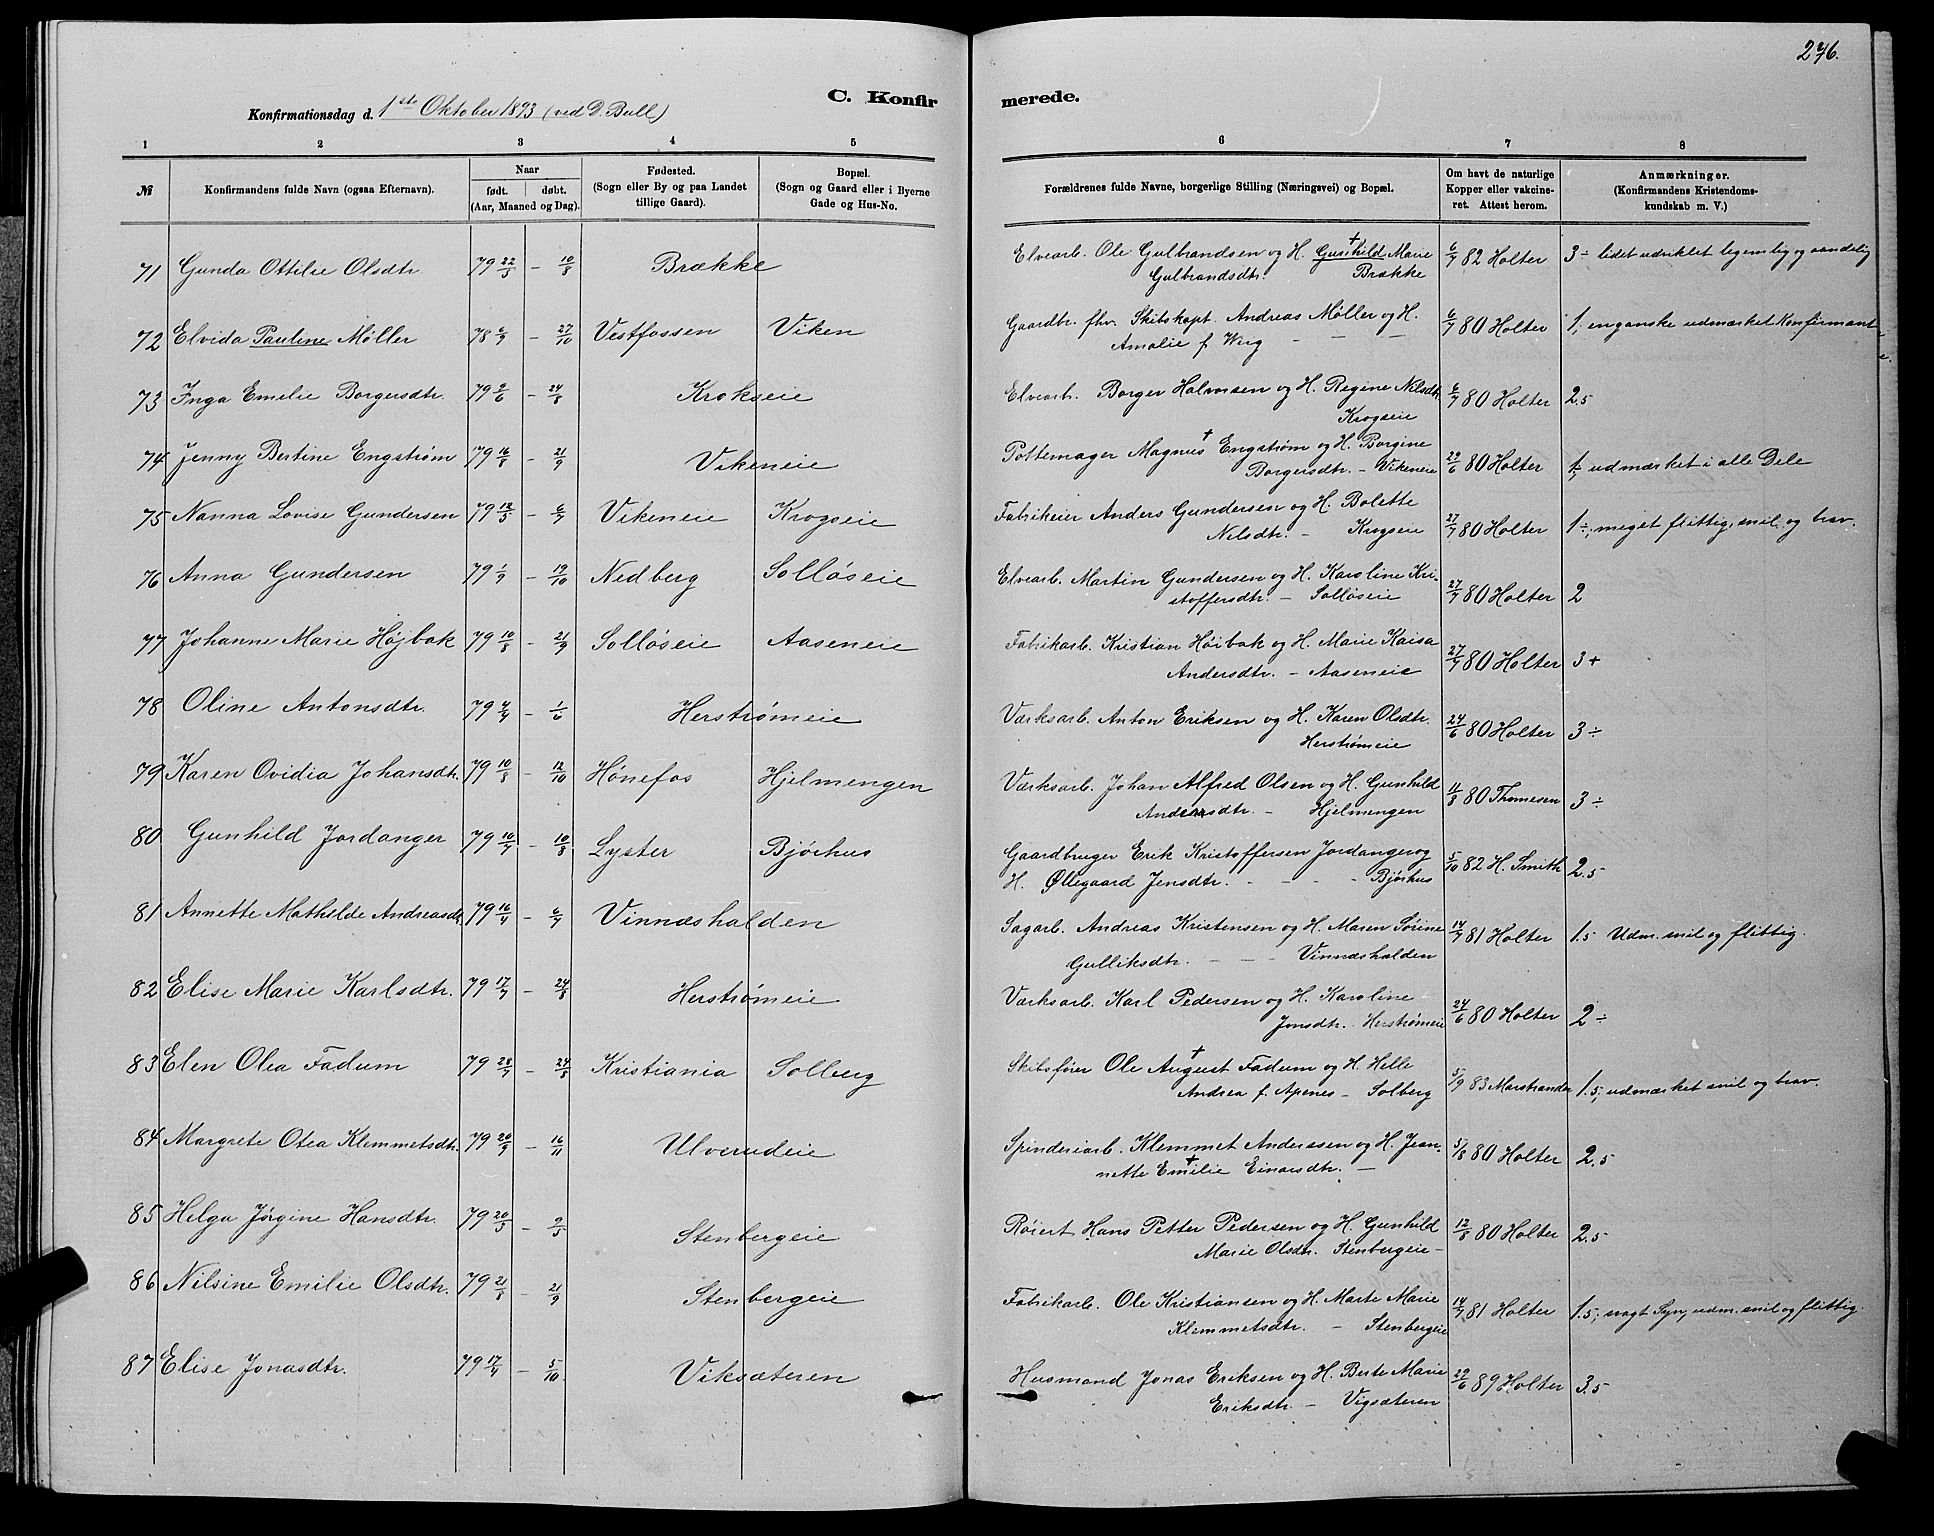 276.
Konfirmationsdag d. 1ste Oktober 1893 (ved D. Bull)
C. Konfirmerede.
1 2 3 4 5 6 7 8
№ Konfirmandens fulde Navn (ogsaa Efternavn). Naar født. døbt. (Aar, Maaned og Dag). Fødested. (Sogn eller By og paa Landet tillige Gaard). Bopæl. (Sogn og Gaard eller i Byerne Gade og Hus-No. Forældrenes fulde Navne, borgerlige Stilling (Næringsvei) og Bopæl. Om havt de naturlige Kopper eller vakcineret. Attest herom. Anmærkninger. (Konfirmandens Kristendomskundskab m. V.)
71 Gunda Ottilie Olsdtr. 79 22/5 – 10/8 Brække Elvearb. Ole Gulbrandsen og H. Gunhild † Marie 6/7 82 Holter 3 ÷ lidet udviklet legemlig og aandelig
Gulbrandsdtr. Brække
72 Elvida Pauline Møller 78 6/9 – 27/10 Vestfossen Viken Gaardbr. fhv. Skibskapt. Andreas Møller og H. 6/7 80 Holter 1, en ganske udmærket Konfirmant
Amalie f. Wiig – – –
73 Inga Emilie Borgersdtr. 79 9/6 – 24/8 Krokseie Elvearb. Borger Halvorsen og H. Regine Nilsdtr. 6/7 80 Holter 2.5
Krogseie
74 Jenny Bertine Engstrøm 79 16/8 – 21/9 Vikeneie Pottemager Magnus † Engstrøm og H. Borgine 29/6 80 Holter 1, udmærket i alle Dele
Borgersdtr. – Vikeneie
75 Nanna Lovise Gundersen 79 12/5 – 6/7 Vikeneie Krogseie Fabrikeier Anders Gundersen og H. Bolette 27/7 80 Holter 1 ÷, meget flittig, snil og brav.
Nilsdtr. – Krogseie
76 Anna Gundersen 79 1/9 – 19/10 Nedberg Solløseie Elvearb. Martin Gundersen og H. Karoline Kri- 27/7 80 Holter 2
stoffersdtr. – Solløseie
77 Johanne Marie Højbak 79 10/8 – 21/9 Solløseie Aaseneie Fabrikarb. Kristian Høibak og H. Marie Kaisa 27/7 80 Holter 3+
Andersdtr. – Aaseneie
78 Oline Antonsdtr. 79 4/4 – 1/6 Herstrømeie Værksarb. Anton Eriksen og H. Karen Olsdtr. 24/6 80 Holter 3 ÷
Herstrømeie
79 Karen Ovidia Johansdtr. 79 10/8 – 12/10 Hønefos Hjelmengen Værksarb. Johan Alfred Olsen og H. Gunhild 11/8 80 Thomesen 3 ÷
Andersdtr. – Hjelmengen
80 Gunhild Jordanger 79 10/7 – 10/8 Lyster Bjørhus Gaardbruger Erik Kristoffersen Jordanger og 5/10 82 H. Smith 2.5
H. Øllegaard Jensdtr. – – – Bjørhus
81 Annette Mathilde Andreasdtr. 79 16/4 – 6/7 Vinnæshalden Sagarb. Andreas Kristensen og H. Maren Sørine 14/7 81 Holter 1.5 Udm. snil og flittig.
Gulliksdtr. – – – Vinnæshalden
82 Elise Marie Karlsdtr. 79 17/7 – 24/8 Herstrømeie Værksarb. Karl Pedersen og H. Karoline 24/6 80 Holter 2 ÷
Jonsdtr. Herstrømeie
83 Elen Olea Fadum 79 28/7 – 24/8 Kristiania Solberg Skibsfører Ole August † Fadum og H. Helle 5/9 83 Marstrander 1.5; udmærket snil og brav.
Andrea f. Apenes – Solberg
84 Margrete Otea Klemmetsdtr. 79 20/9 – 16/11 Ulverudeie Spinderiarb. Klemmet Anderssen og H. Jean- 5/8 80 Holter 2.5
nette Emilie † Einarsdtr. –
85 Helga Jørgine Hansdtr. 79 20/3 – 9/5 Stenbergeie Røiert Hans Petter Pedersen og H. Gunhild 12/8 80 Holter 2.5
Marie Olsdtr. Stenbergeie –
86 Nilsine Emilie Olsdtr. 79 21/8 – 21/9 Stenbergeie Fabrikarb. Ole Kristiansen og H. Marte Marie 14/7 81 Holter 1.5; svagt Syn, udm. snil og flittig.
Klemmetsdtr. – Stenbergeie
87 Elise Jonasdtr. 79 17/4 – 5/10 Viksæteren Husmand Jonas Eriksen og H. Berte Marie 29/6 89 Holter 3.5
Eriksdtr. – Vigsæteren